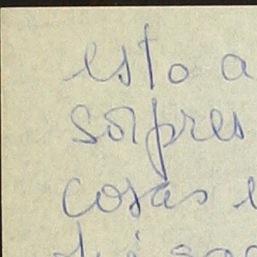 esto a
sorpres
cosas